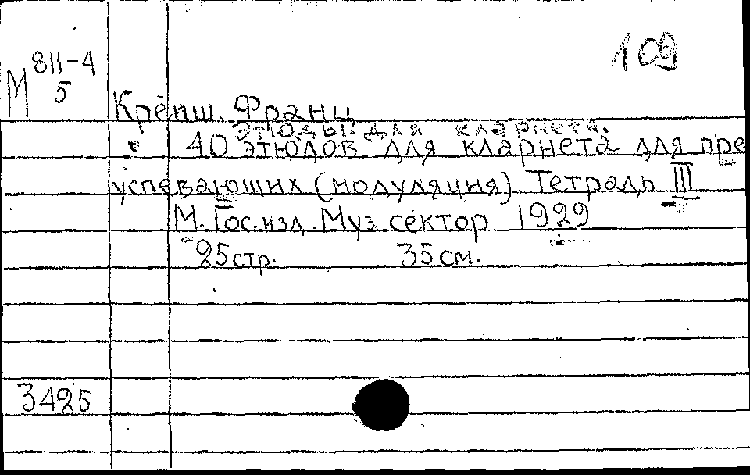 М 811-4
5
109
Крепш. Франц
Этюды для кларнета.
40 этюдов для кларнета для пре
успевающих (модуляция). Тетрадь III
М. Гос. изд. Муз. сектор 1929
25 стр. 35 см.
3425